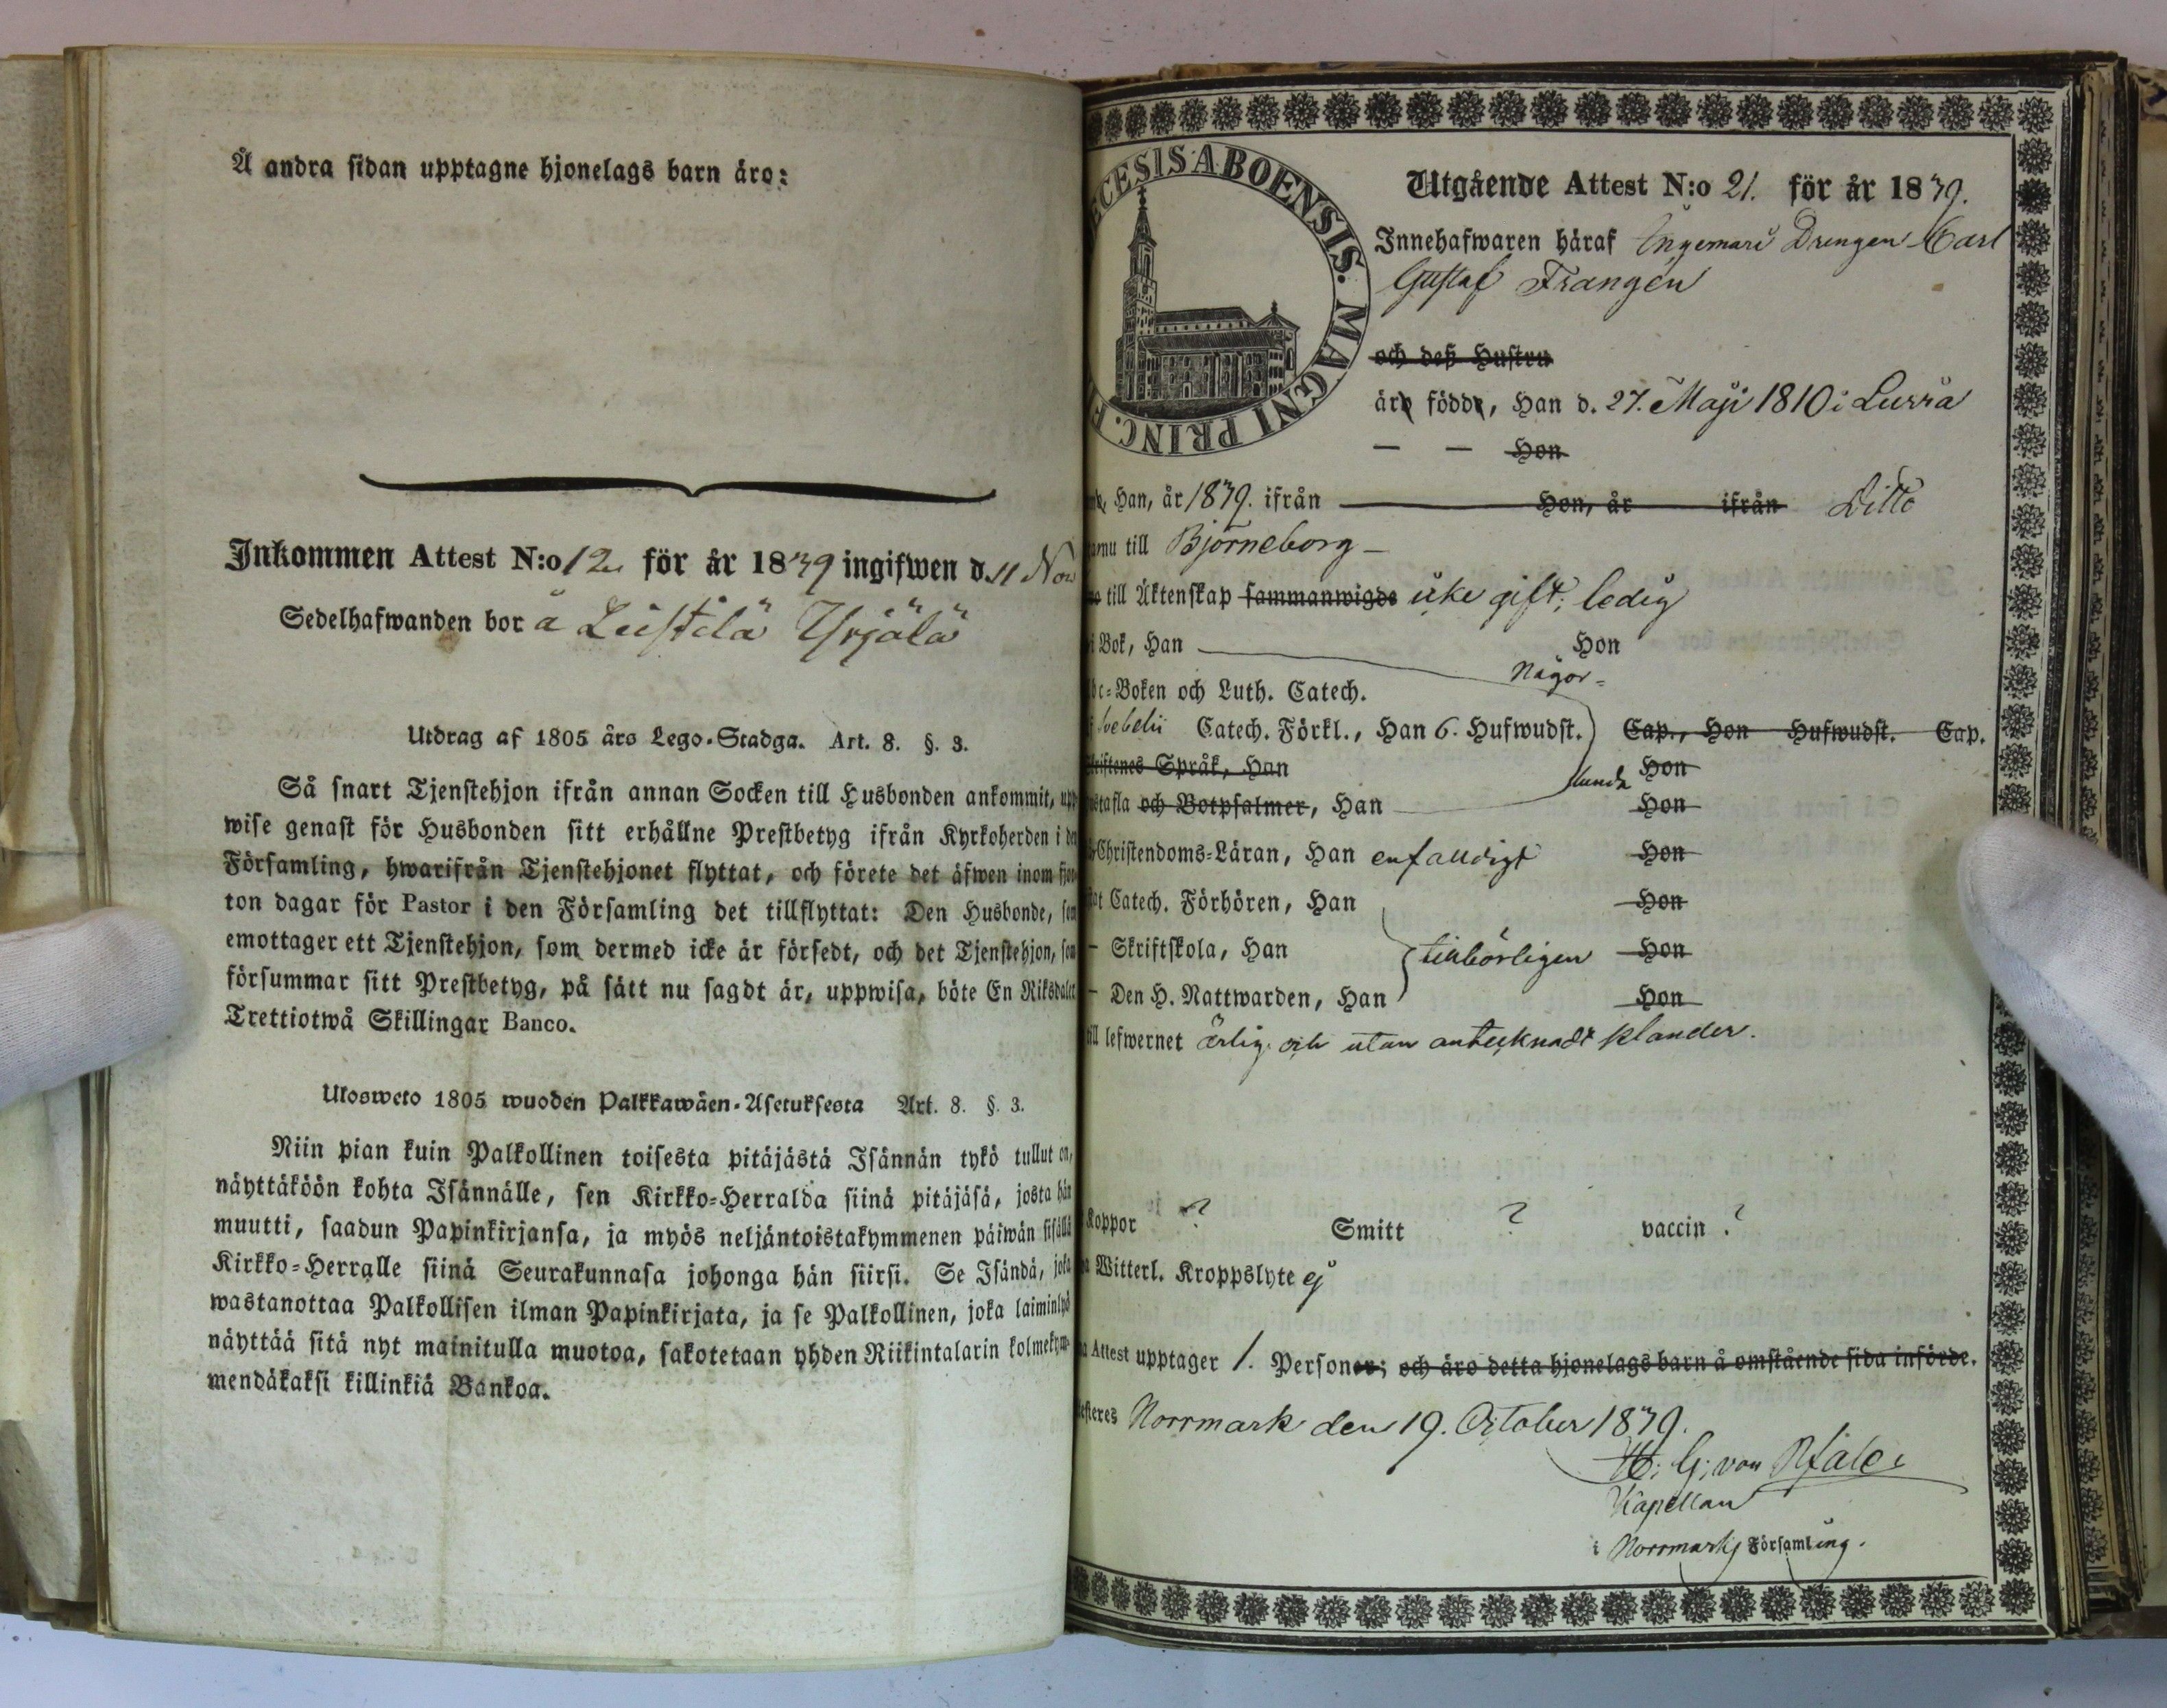 Å andra sidan upptagne hjonelags barn äro:
Inkommen Attest N:o 12 för år 1839 ingifwen d. 11 Nov
Sedelhafwanden bor å Leistilä Yrjälä
Utdrag af 1805 års Lego-Stadga. Art. 8. §. 3.
Så snart Tjenstehjon ifrån annan Socken till Husbonden ankommit, upp
wise genast för Husbonden sitt erhållne Prestbetyg ifrån Kyrkoherden i den
Församling, hwarifrån Tjenstehjonet flyttat, och förete det äfwen inom fjor
ton dagar för Pastor i den Församling det tillflyttat: Den Husbonde, som
emottager ett Tjenstehjon, som dermed icke är försedt, och det Tjenstehjon, som
försummar sitt Prestbetyg, på sätt nu sagdt är, uppwisa, böte En Riksdaler
Trettiotwå Skillingar Banco.
Ulosweto 1805 wuoden Palkkawäen-Asetuksesta Art. 8. §. 3.
Niin pian kuin Palkollinen toisesta pitäjästä Isännän tykö tullut on,
näyttäköön kohta Isännälle, sen Kirkko-Herralda siinä pitäjäsä, josta hän
muutti, saadun Papinkirjansa, ja myös neljäntoistakymmenen päiwän sisällä
Kirkko-Herralle siinä Seurakunnasa johonga hän siirsi. Se Isändä, joka
wastanottaa Palkollisen ilman Papinkirjata, ja se Palkollinen, joka laiminlyö
näyttää sitä nyt mainitulla muotoa, sakotetaan yhden Riikintalarin kolmekym-
mendäkaksi killinkiä Bankoa.
ECESIS ABOENSIS. MAGNI PRINC. F
Utgående Attest N:o 21. för år 1839.
Innehafwaren häraf Drengen Carl
Gustaf Frangén
och deß Hustru
äro födde, Han d. 27. Maji 1810 i
— — Hon
Han, år 1839. ifrån Hon, år ifrån Ditto
nu till Björneborg
till Äktenskap sammanwigde icke gift; ledig
i Bok, Han Hon
Någor-
bc-Boken och Luth. Catech.
Svebelii Catech. Förkl., Han 6. Hufwudst. Cap., Hon Hufwudst. Cap.
Skriftenes Språk, Han lunda Hon
stafla och Botpsalmer, Han Hon
Christendoms-Läran, Han enfalldigt Hon
Catech. Förhören, Han Hon
– Skriftskola, Han tillbörligen Hon
– Den H. Nattwarden, Han Hon
till lefwernet ärlig och utan antecknadt klander.
Koppor ? Smitt ? vaccin ?
Witterl. Kroppslyte ej
Attest upptager 1. Personer; och äro detta hjonelags barn å omstående sida införde.
esteres Norrmark den 19. October 1839.
H. G. von Pfaler
Kapellan
i Norrmarks Församling.